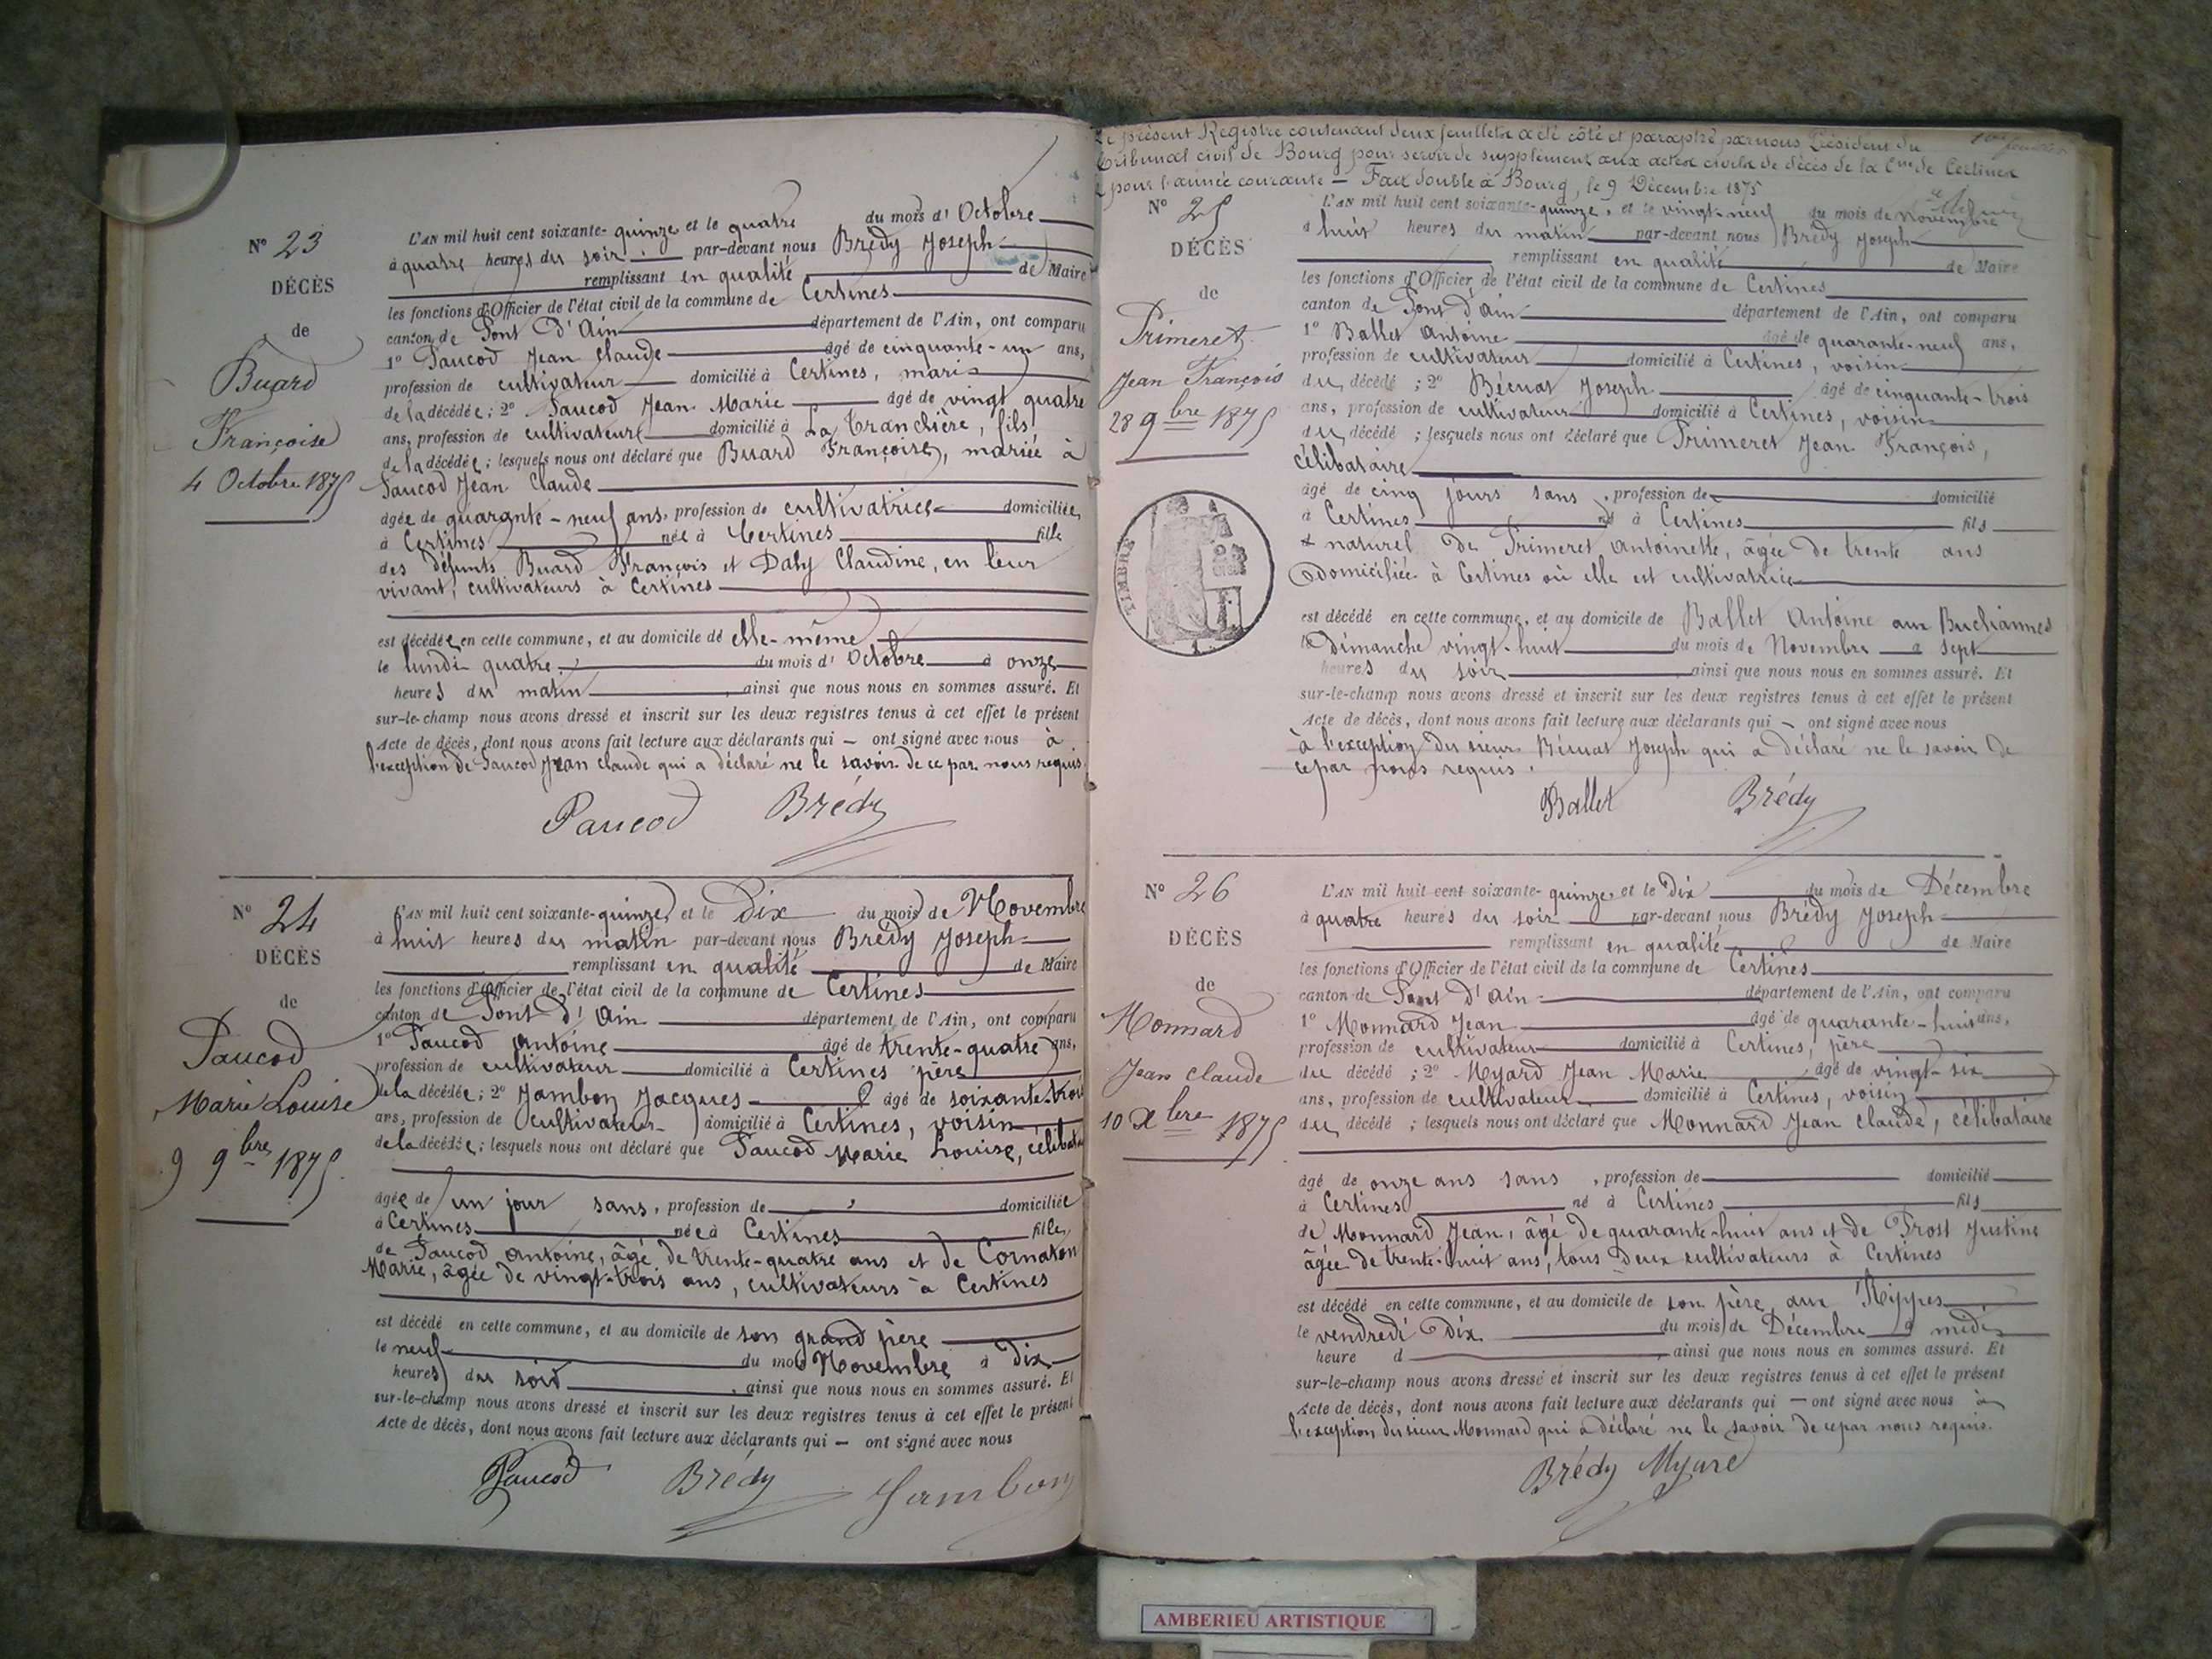 N° 23
DÉCÈS
de
Buard
Françoise
4 Octobre 1875
L'AN mil huit cent soixante-quinze et le quatre du mois d'Octobre
à quatre heures du soir par-devant nous Brédy Joseph
remplissant en qualité de Maire
les fonctions d'Officier de l'état civil de la commune de Certines
canton de Pont d'Ain département de l'Ain, ont comparu
1° Paucod Jean Claude âgé de cinquante-un ans,
profession de cultivateur domicilié à Certines, mari
de la décédée ; 2° Paucod Jean Marie âgé de vingt quatre
ans, profession de cultivateur domicilié à La Tranclière, fils
de la décédée ; lesquels nous ont déclaré que Buard Françoise, mariée à
Paucod Jean Claude
âgée de quarante-neuf ans, profession de cultivatrice domiciliée
à Certines née à Certines fille
des défunts Buard François et Daly Claudine, en leur
vivant, cultivateurs à Certines
est décédée en cette commune, et au domicile de elle-même
le lundi quatre du mois d'Octobre à onze
heures du matin, ainsi que nous nous en sommes assuré. Et
sur-le-champ nous avons dressé et inscrit sur les deux registres tenus à cet effet le présent
Acte de décès, dont nous avons fait lecture aux déclarants qui — ont signé avec nous à
l'exception de Paucod Jean Claude qui a déclaré ne le savoir de ce par nous requis.
Paucod Brédy
N° 24
DÉCÈS
de
Paucod
Marie Louise
9 9bre 1875
L'AN mil huit cent soixante-quinze et le Dix du mois de Novembre
à huit heures du matin par-devant nous Brédy Joseph
remplissant en qualité de Maire
les fonctions d'Officier de l'état civil de la commune de Certines
canton de Pont d'Ain département de l'Ain, ont comparu
1° Paucod Antoine âgé de trente-quatre ans,
profession de cultivateur domicilié à Certines père
de la décédée ; 2° Jambon Jacques âgé de soixante-trois
ans, profession de cultivateur domicilié à Certines, voisin
de la décédée ; lesquels nous ont déclaré que Paucod Marie Louise,
âgée de un jour sans, profession de domiciliée
à Certines née à Certines fille
de Paucod Antoine, âgé de trente-quatre ans et de Cornaton
Marie, âgée de vingt-trois ans, cultivateurs à Certines
est décédé en cette commune, et au domicile de son grand père
le neuf du mois Novembre à dix
heures du soir, ainsi que nous nous en sommes assuré. Et
sur-le-champ nous avons dressé et inscrit sur les deux registres tenus à cet effet le présent
Acte de décès, dont nous avons fait lecture aux déclarants qui — ont signé avec nous
Paucod Brédy Jambon
Le présent Registre contenant deux feuillets a été côté et paraphé par nous Président du
Tribunal civil de Bourg pour servir de supplément aux actes civils de décès de la Cne de Certines
pour l'année courante — Fait double à Bourg, le 9 Décembre 1875
N° 25
DÉCÈS
de
Primeret
Jean François
28 9bre 1875
TIMBRE
L'AN mil huit cent soixante-quinze, et le vingt-neuf du mois de Novembre
à huit heures du matin par-devant nous Brédy Joseph
remplissant en qualité de Maire
les fonctions d'Officier de l'état civil de la commune de Certines
canton de Pont d'Ain département de l'Ain, ont comparu
1° Ballet Antoine âgé de quarante-neuf ans,
profession de cultivateur domicilié à Certines, voisin
du décédé ; 2° Bécuat Joseph âgé de cinquante-trois
ans, profession de cultivateur domicilié à Certines, voisin
du décédé ; lesquels nous ont déclaré que Primeret Jean François,
célibataire
âgé de cinq jours sans, profession de domicilié
à Certines né à Certines fils
naturel de Primeret Antoinette, âgée de trente ans
domiciliée à Certines où elle est cultivatrice
est décédé en cette commune, et au domicile de Ballet Antoine aux Buchannes
le Dimanche vingt-huit du mois de Novembre à sept
heures du soir, ainsi que nous nous en sommes assuré. Et
sur-le-champ nous avons dressé et inscrit sur les deux registres tenus à cet effet le présent
Acte de décès, dont nous avons fait lecture aux déclarants qui — ont signé avec nous
à l'exception du sieur Bécuat Joseph qui a déclaré ne le savoir de
ce par nous requis.
Ballet Brédy
N° 26
DÉCÈS
de
Monnard
Jean Claude
10 Xbre 1875
L'AN mil huit cent soixante-quinze et le Dix du mois de Décembre
à quatre heures du soir par-devant nous Brédy Joseph
remplissant en qualité de Maire
les fonctions d'Officier de l'état civil de la commune de Certines
canton de Pont d'Ain département de l'Ain, ont comparu
1° Monnard Jean âgé de quarante-huit ans,
profession de cultivateur domicilié à Certines, père
du décédé ; 2° Myard Jean Marie âgé de vingt-six
ans, profession de cultivateur domicilié à Certines, voisin
du décédé ; lesquels nous ont déclaré que Monnard Jean Claude, célibataire
âgé de onze ans sans, profession de domicilié
à Certines né à Certines fils
de Monnard Jean, âgé de quarante-huit ans et de Trost Justine
âgée de trente-huit ans, tous deux cultivateurs à Certines
est décédé en cette commune, et au domicile de son père, aux Rippes
le vendredi Dix du mois de Décembre à midi
heure d, ainsi que nous nous en sommes assuré. Et
sur-le-champ nous avons dressé et inscrit sur les deux registres tenus à cet effet le présent
Acte de décès, dont nous avons fait lecture aux déclarants qui — ont signé avec nous à
l'exception du sieur Monnard qui a déclaré ne le savoir de ce par nous requis.
Brédy Myard
AMBERIEU ARTISTIQUE